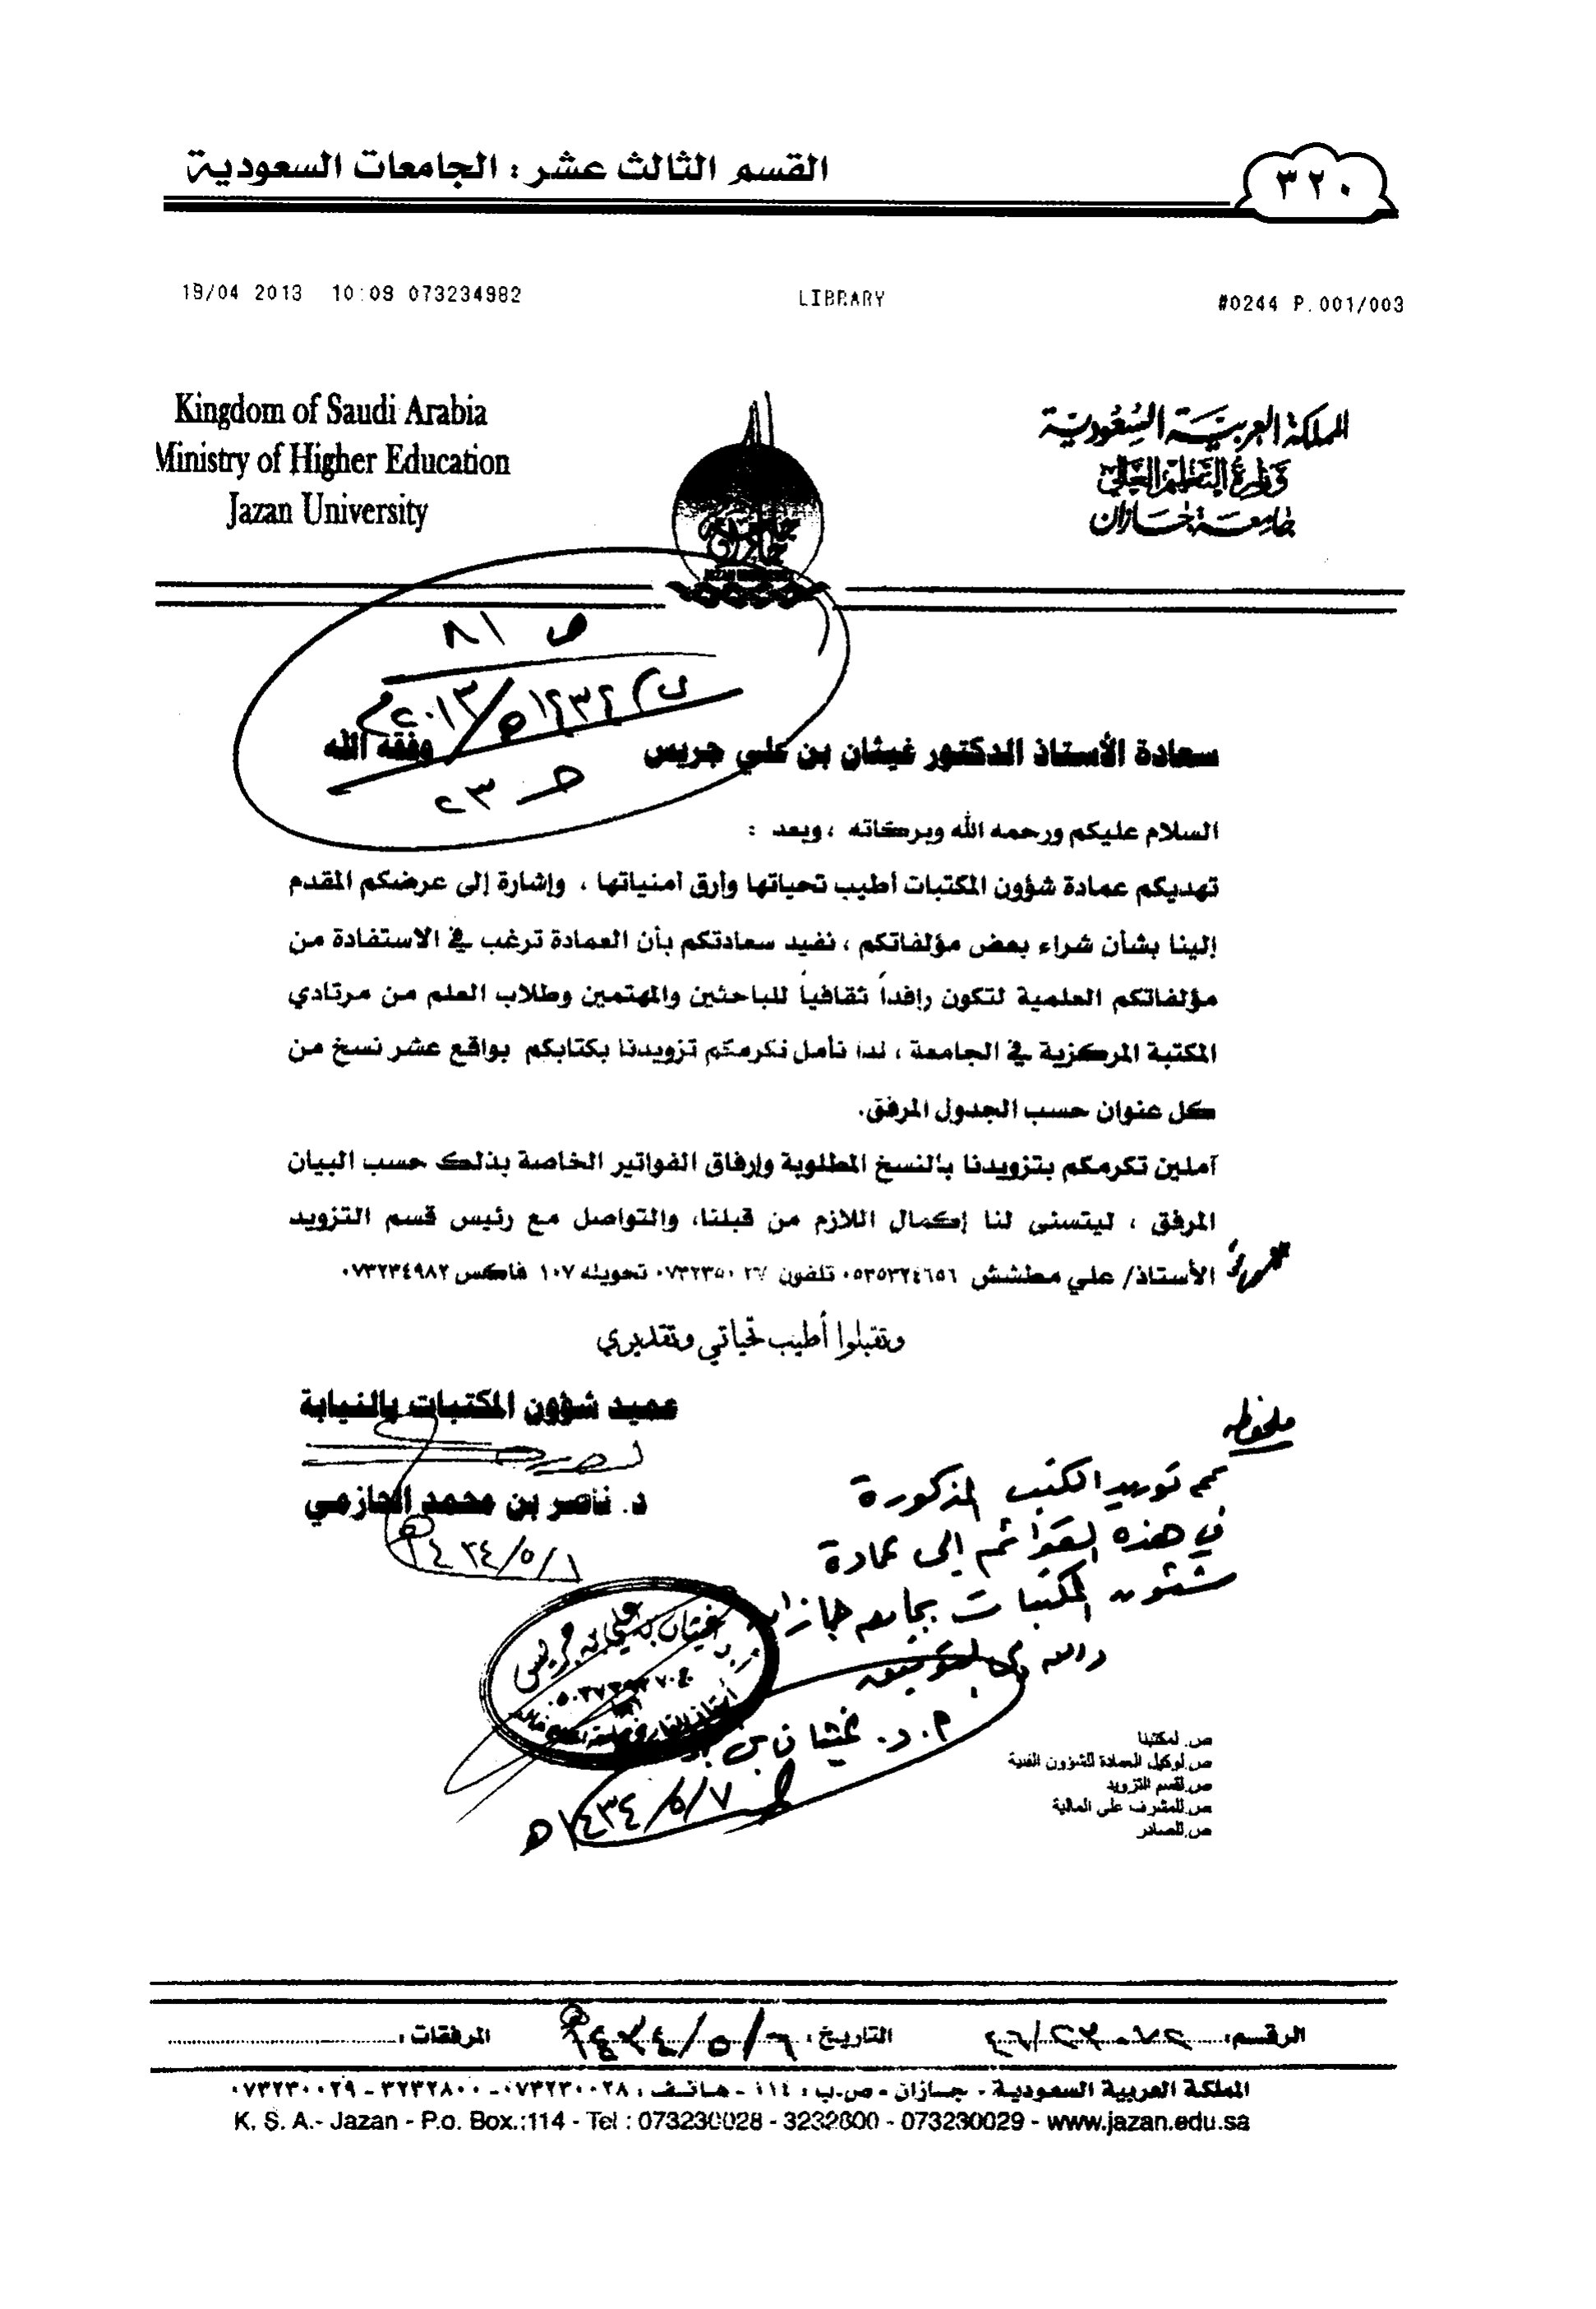 القسم الثالث عشر : الجامعات السعودية
٣٢٠
19/04 2013 10:09 073234982 LIBRARY #0244 P.001/003
Kingdom of Saudi Arabia
Ministry of Higher Education
Jazan University
المملكة العربية السعودية
وزارة التعليم العالي
جامعة جازان
ص ٨١
ق ١٤٣٤هـ/٢٠١٣م
ح ٢٣
سعادة الأستاذ الدكتور غيثان بن علي جريس وفقه الله
السلام عليكم ورحمه الله وبركاته ، وبعد :
تهديكم عمادة شؤون المكتبات أطيب تحياتها وأرق أمنياتها ، وإشارة إلى عرضكم المقدم
إلينا بشأن شراء بعض مؤلفاتكم ، نفيد سعادتكم بأن العمادة ترغب في الاستفادة من
مؤلفاتكم العلمية لتكون رافداً ثقافياً للباحثين والمهتمين وطلاب العلم من مرتادي
المكتبة المركزية في الجامعة ، لذا نأمل تكرمكم تزويدنا بكتابكم بواقع عشر نسخ من
كل عنوان حسب الجدول المرفق.
آملين تكرمكم بتزويدنا بالنسخ المطلوبة وإرفاق الفواتير الخاصة بذلك حسب البيان
المرفق ، ليتسنى لنا إكمال اللازم من قبلنا، والتواصل مع رئيس قسم التزويد
الأستاذ/ علي مطشش ٠٥٣٥٣٢٤٦٥٦ تلفون ٠٧٣٢٣٥٠٢٧ تحويله ١٠٧ فاكس ٠٧٣٢٣٤٩٨٢
وتقبلوا أطيب تحياتي وتقديري
عميد شؤون المكتبات بالنيابة
د. ناصر بن محمد الحازمي
ملحوظه
تم توريد الكتب المذكورة
في هذه القوائم إلى عمادة
شئون المكتبات بجامعة جازان
والله ولي التوفيق
أ.د. غيثان بن
١٤٣٤/٥/٧هـ
ص. لمكتبنا
ص. لوكيل العمادة للشؤون الفنية
ص. لقسم التزويد
ص. للمشرف على المالية
ص. للصادر
الرقم: التاريخ: ١٤٣٤/٥/٦هـ المرفقات:
المملكة العربية السعودية - جازان - ص.ب : ١١٤ - هاتف : ٠٧٣٢٣٠٠٢٨ - ٣٢٣٢٨٠٠ - ٠٧٣٢٣٠٠٢٩
K. S. A.- Jazan - P.o. Box.:114 - Tel : 073230028 - 3232800 - 073230029 - www.jazan.edu.sa